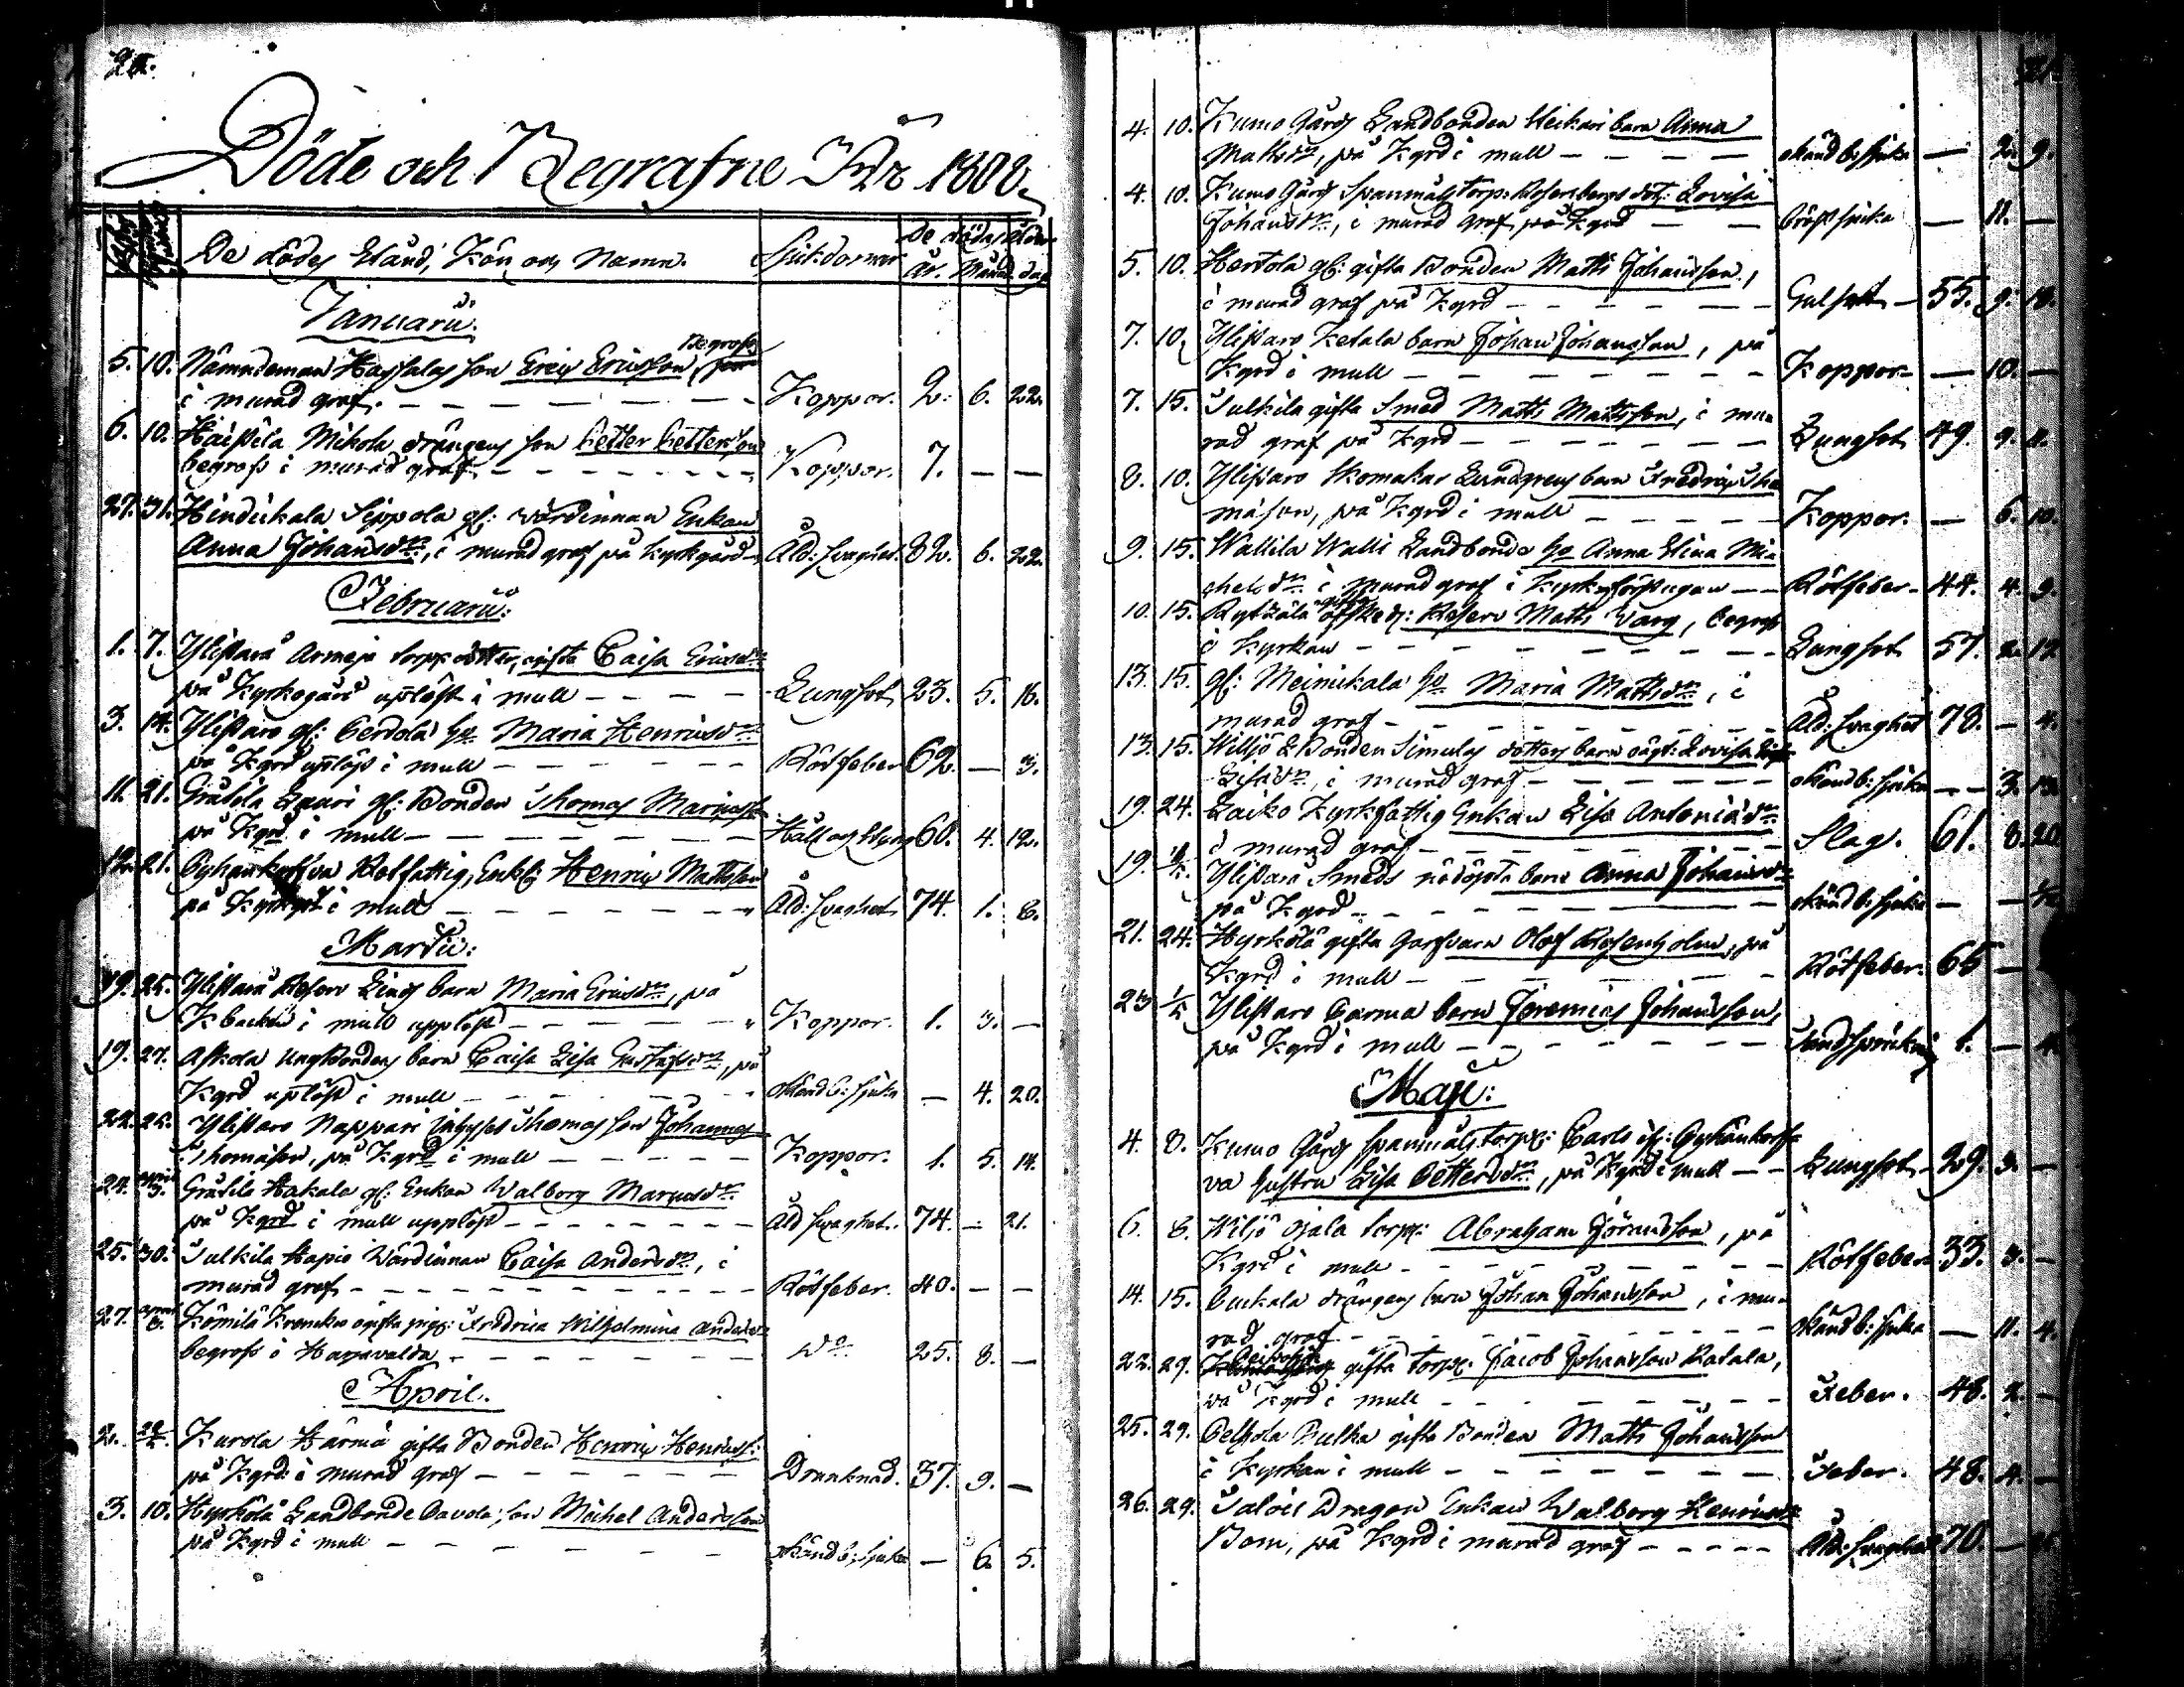 20.
Döde och Begrafne År 1802.
De dödes Stånd, Kön och Namn. Sjukdomar. De dödas ålder
År. Månad. dag
Januarii.
5. 10. Nämndeman Hassalas son Eric Ericsson, Begrofs
i murad graf. Koppor. 2. 6. 22.
6. 10. Mikola drängens son Petter Pettersson
begrofs i murad graf Koppor. 7. — —
27. 31. Hindickala Sippola gl: wärdinnan Enkan
Anna Johansdr, i murad graf på kyrkgård Åld: svaghet. 82. 6. 22.
Februarii:
1. 7. Ylistaro Torp: dotter, ogifta Caisa Ericsdr
på Kyrkogård uplöst i mull Lungsot 23. 5. 16.
3. 14. Ylistaro gl: Perdola hu Maria Henricsdr
på Kgrd uplöst i mull Rötfeber 62. — 3.
11. 21. Gräsila Lauri gl: Bonden Thomas
på Kgrd i mull Håll och Styng 60. 4. 12.
12. 21. Rotfattig, Enkl: Henric Mattsson
på i mull Åld: svaghet 74. 1. 8.
Martii:
19. 25. Ylistaro Reserv Linds barn Maria Ericsdr, på
K backen i mull upplöst Koppor. 1. 3. —
19. 27. Askola Ungbondens barn Caisa Lisa Gustafsdr, på
Kgrd uplöst i mull okänd b: sjuka — 4. 20.
22. 25. Ylistaro Nappari Inhyses Thomas son Johannes
Thomasson, på Kgrd i mull Koppor. 1. 5. 14.
24. Gräsila Hakala gl: Enkan Walborg
på Kgrd i mull upplöst Åld svaghet. 74. — 21.
25. 30. Sulkila Hapio Wärdinnan Caisa Andersdr, i
murad graf Rötfeber. 40. — —
27. April 8. ogifta pig: Fredrica Wilhelmina Andersdr
begrofs i Harjavalda Do 25. 8. —
April.
2. Kurola Härmä gifta Bonden Henric Henricss:
på Kgrd: i murad graf Drunknad. 37. 9. —
3. 10. Hyrkölä Landbonde Pavola: son Michel Andersson
på Kgrd i mull okänd b: sjuka — 6. 5.
21.
4. 10. Kumo Gårds Landbonden Heikari barn Anna
Mattsdr, på Kgrd i mull okänd b: sjuka — 2. 9.
4. 10. Kumo Gårds Spannmåls torp: Rosenbergs dot: Lovisa
Johansdr, i murad graf på Kgrd bröstsjuka — 11. —
5. 10. Hertola gl: gifta Bonden Matts Johansson,
i murad graf på Kgrd Gulsot 55. 9. 18.
7. 10. Ylistaro Ketala barn Johan Johansson, på
Kgrd i mull Koppor — 10. —
7. 15. Sulkila gifta Smed Matts Mattsson, i mu-
rad graf på Kgrd Lungsot 49. 9. 11.
8. 10. Ylistaro Skomakar Lundgrens barn Fredric Tho
masson, på Kgrd i mull Koppor. — 6. 10.
9. 15. Wallila Walli Landbonde hu Anna Stina Mi-
chelsdr i murad graf i Kyrkoförstugan Rötfeber 44. 4. 9.
10. 15. afsked: Reserv Matts Warg, begrofs
i Kyrkan Lungsot 57. 2. 17.
13. 15. gl: Meinikala hu Maria Mattsdr, i
murad graf Åld: svaghet 78. — 4.
13. 15. Wiljo Bonden Simulas dotters barn oägt: Lovisa
Lisasdr, i murad graf okänd b: sjuka — 3. 13.
19. 24. Laiko Kyrkfattig Enkan Lisa Antonisdr
i murad graf Slag. 61. 8. 20
19. Ylistaro Smeds nödöpta barn Anna Johansdr
på Kgrd okänd b: sjuka — —
21. 24. Hyrkölä gifta Garfvarn Olof Rosenholm, på
Kgrd i mull Rötfeber. 65 —
23 Ylistaro Parma barn Jeremias Johansson,
på Kgrd i mull Tandsprickning 1. — 4.
Maji:
4. 8. Kumo Gårds Spannmåls torp: Carls
va hustru Lisa Pettersdr, på Kgrd i mull Lungsot 29. 3. —
6. 8. Wiljo Ojala torp: Abraham Göransson, på
Kgrd i mull Rötfeber 33. 3. —
14. 15. drängens barn Johan Johansson, i mu-
rad graf okänd b: sjuka — 11. 4.
22. 29. gifta torp: Jacob Johansson Ratala,
på Kgrd i mull Feber. 48. 2. —
25. 29. Pelhola Pulka gifta Bonden Matts Johansson
i Kyrkan i mull Feber. 48. 4. —
26. 29. Dragon Enkan Walborg Henricsdr
Bom, på Kgrd i murad graf Åld: svaghet 70. —